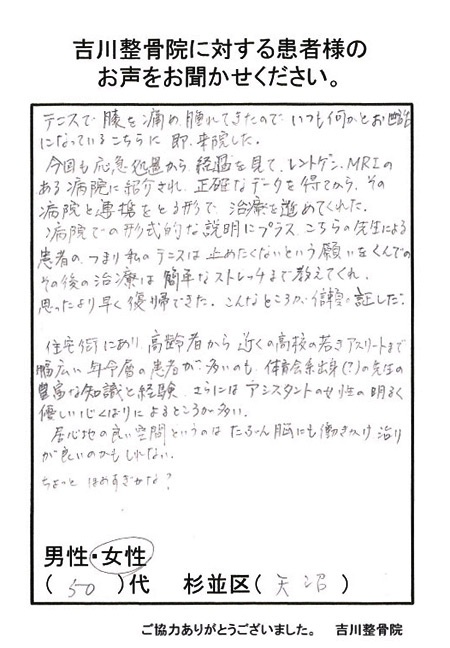 吉川整骨院に対する患者様の
お声をお聞かせください。
テニスで膝を痛め、腫れてきたので いつも何かとお世話
になっているこちらに 即、来院した。
今回も応急処置から、経過を見て、レントゲン、MRIの
ある病院に紹介され、正確なデータを得てから、その
病院と連携をとる形で、治療を進めてくれた。
病院での形式的な説明にプラス、こちらの先生による
患者の、つまり私のテニスは止めたくないという願いをくんでの
その後の治療は 簡単なストレッチまで教えてくれ、
思ったより早く復帰できた。こんなところが信頼の証しだ。
住宅街にあり 高齢者から 近くの高校の若きアスリートまで
幅広い年令層の患者が多いのも、体育会系出身(?)の先生の
豊富な知識と経験、さらには アシスタントの女性の明るく
優しい心くばりによるところが多い。
居心地の良い空間というのは たぶん脳にも働きかけ 治り
が良いのかもしれない。
ちょっと ほめすぎかな?
男性・女性
(50)代 杉並区(天沼)
ご協力ありがとうございました。 吉川整骨院